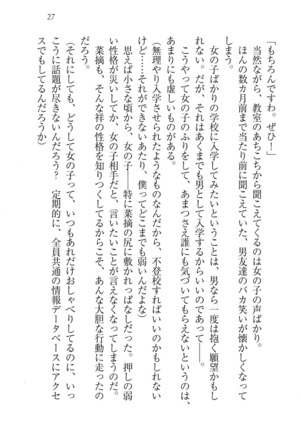 27
「もちろんですわ。ぜひ！」
当然ながら、教室のあちこちから聞こえてくるのは女の子の声ばかり。
ほんの数カ月前まで当たり前に聞こえていた、男友達のバカ笑いが懐かしくなって
しまう。
女の子ばかりの学校に入学してみたいということは、男なら一度は抱く願望かもし
れない。だが、それはあくまでも男として入学するからいいのであって――。
あまりにも虚しいものがある。
（無理やり入学させられたようなものなんだから、不登校すればいいのかもしれない
けど……それができないあたり、僕ってどこまでも弱いんだよな）
思えば小さな頃から、女の子――特に菜摘の尻に敷かれっぱなしだった。押しの弱
い性格が災いしてか、女の子相手だと、言いたいことが言えなくなってしまうのだ。
菜摘も、そんな祥の性格を知りつくしてるからこそ、あんな大胆な行動に走ったの
だろう。
（それにしても、どうして女の子って、いつもあれだけおしゃべりしてるのに、いっ
こうに話題が尽きないんだろう？　定期的に、全員共通の情報データベースにアクセ
スでもしてるんだろうか）